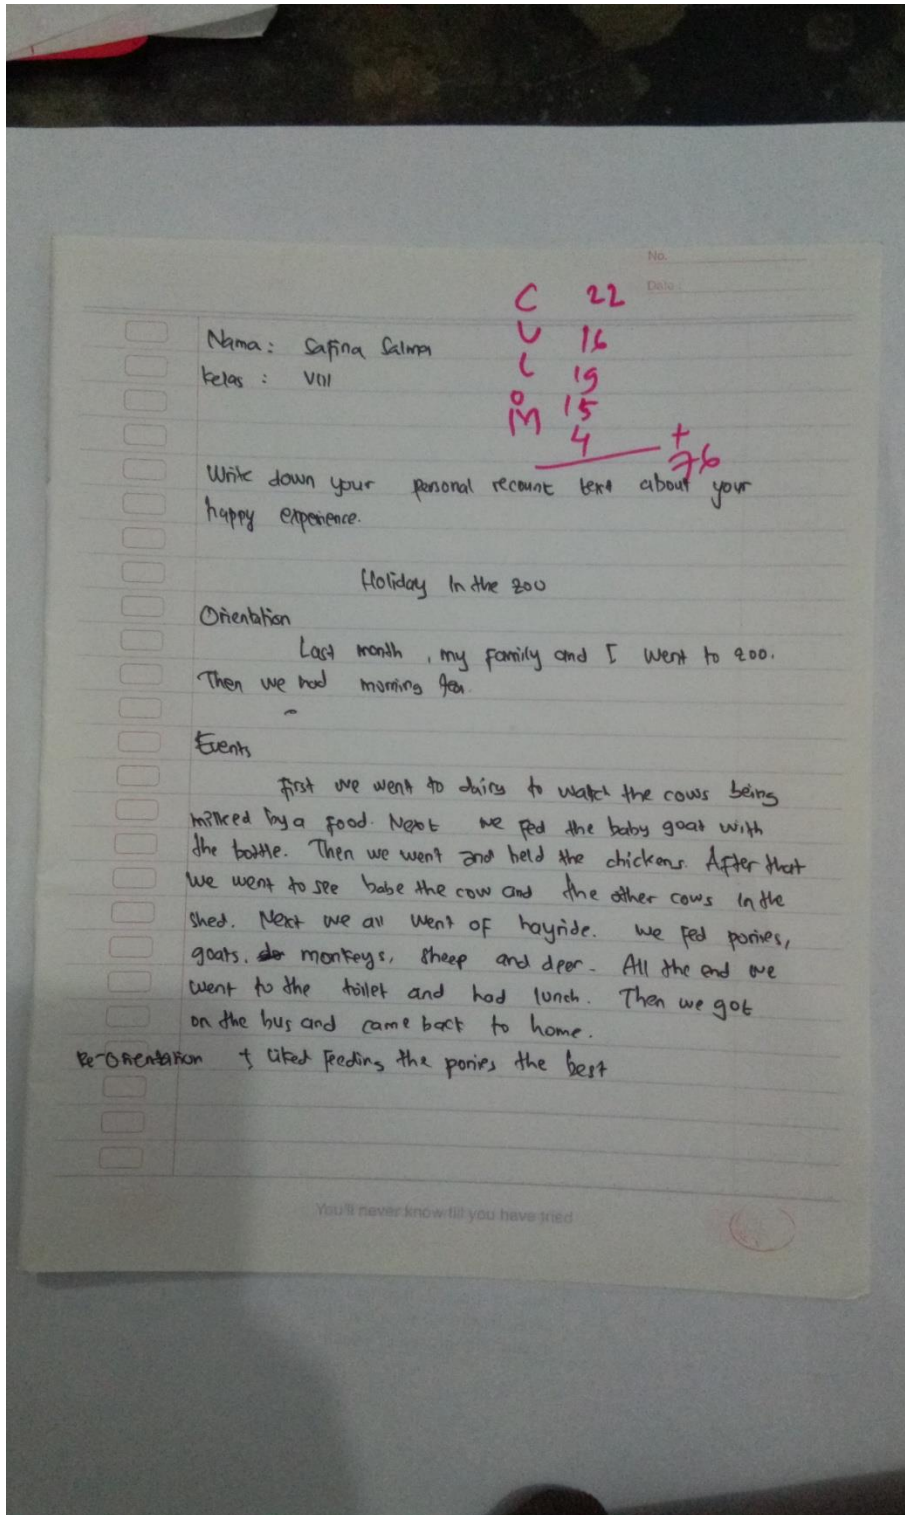 No.
Date :
C 22
U 16
L 19
O 15
M 4 +
76
Nama : Safina Salma
Kelas : VIII
Write down your personal recount text about your
happy experience.
Holiday In the zoo
Orientation
Last month , my family and I went to zoo.
Then we had morning tea.
Events
First we went to dairy to watch the cows being
milked by a food. Next we fed the baby goat with
the bottle. Then we went and held the chickens. After that
we went to see babe the cow and the other cows in the
shed. Next we all went of hayride. We fed ponies,
goats, monkeys, sheep and deer. All the end we
went to the toilet and had lunch. Then we got
on the bus and came back to home.
Re-Orientation I liked feeding the ponies the best
You'll never know till you have tried